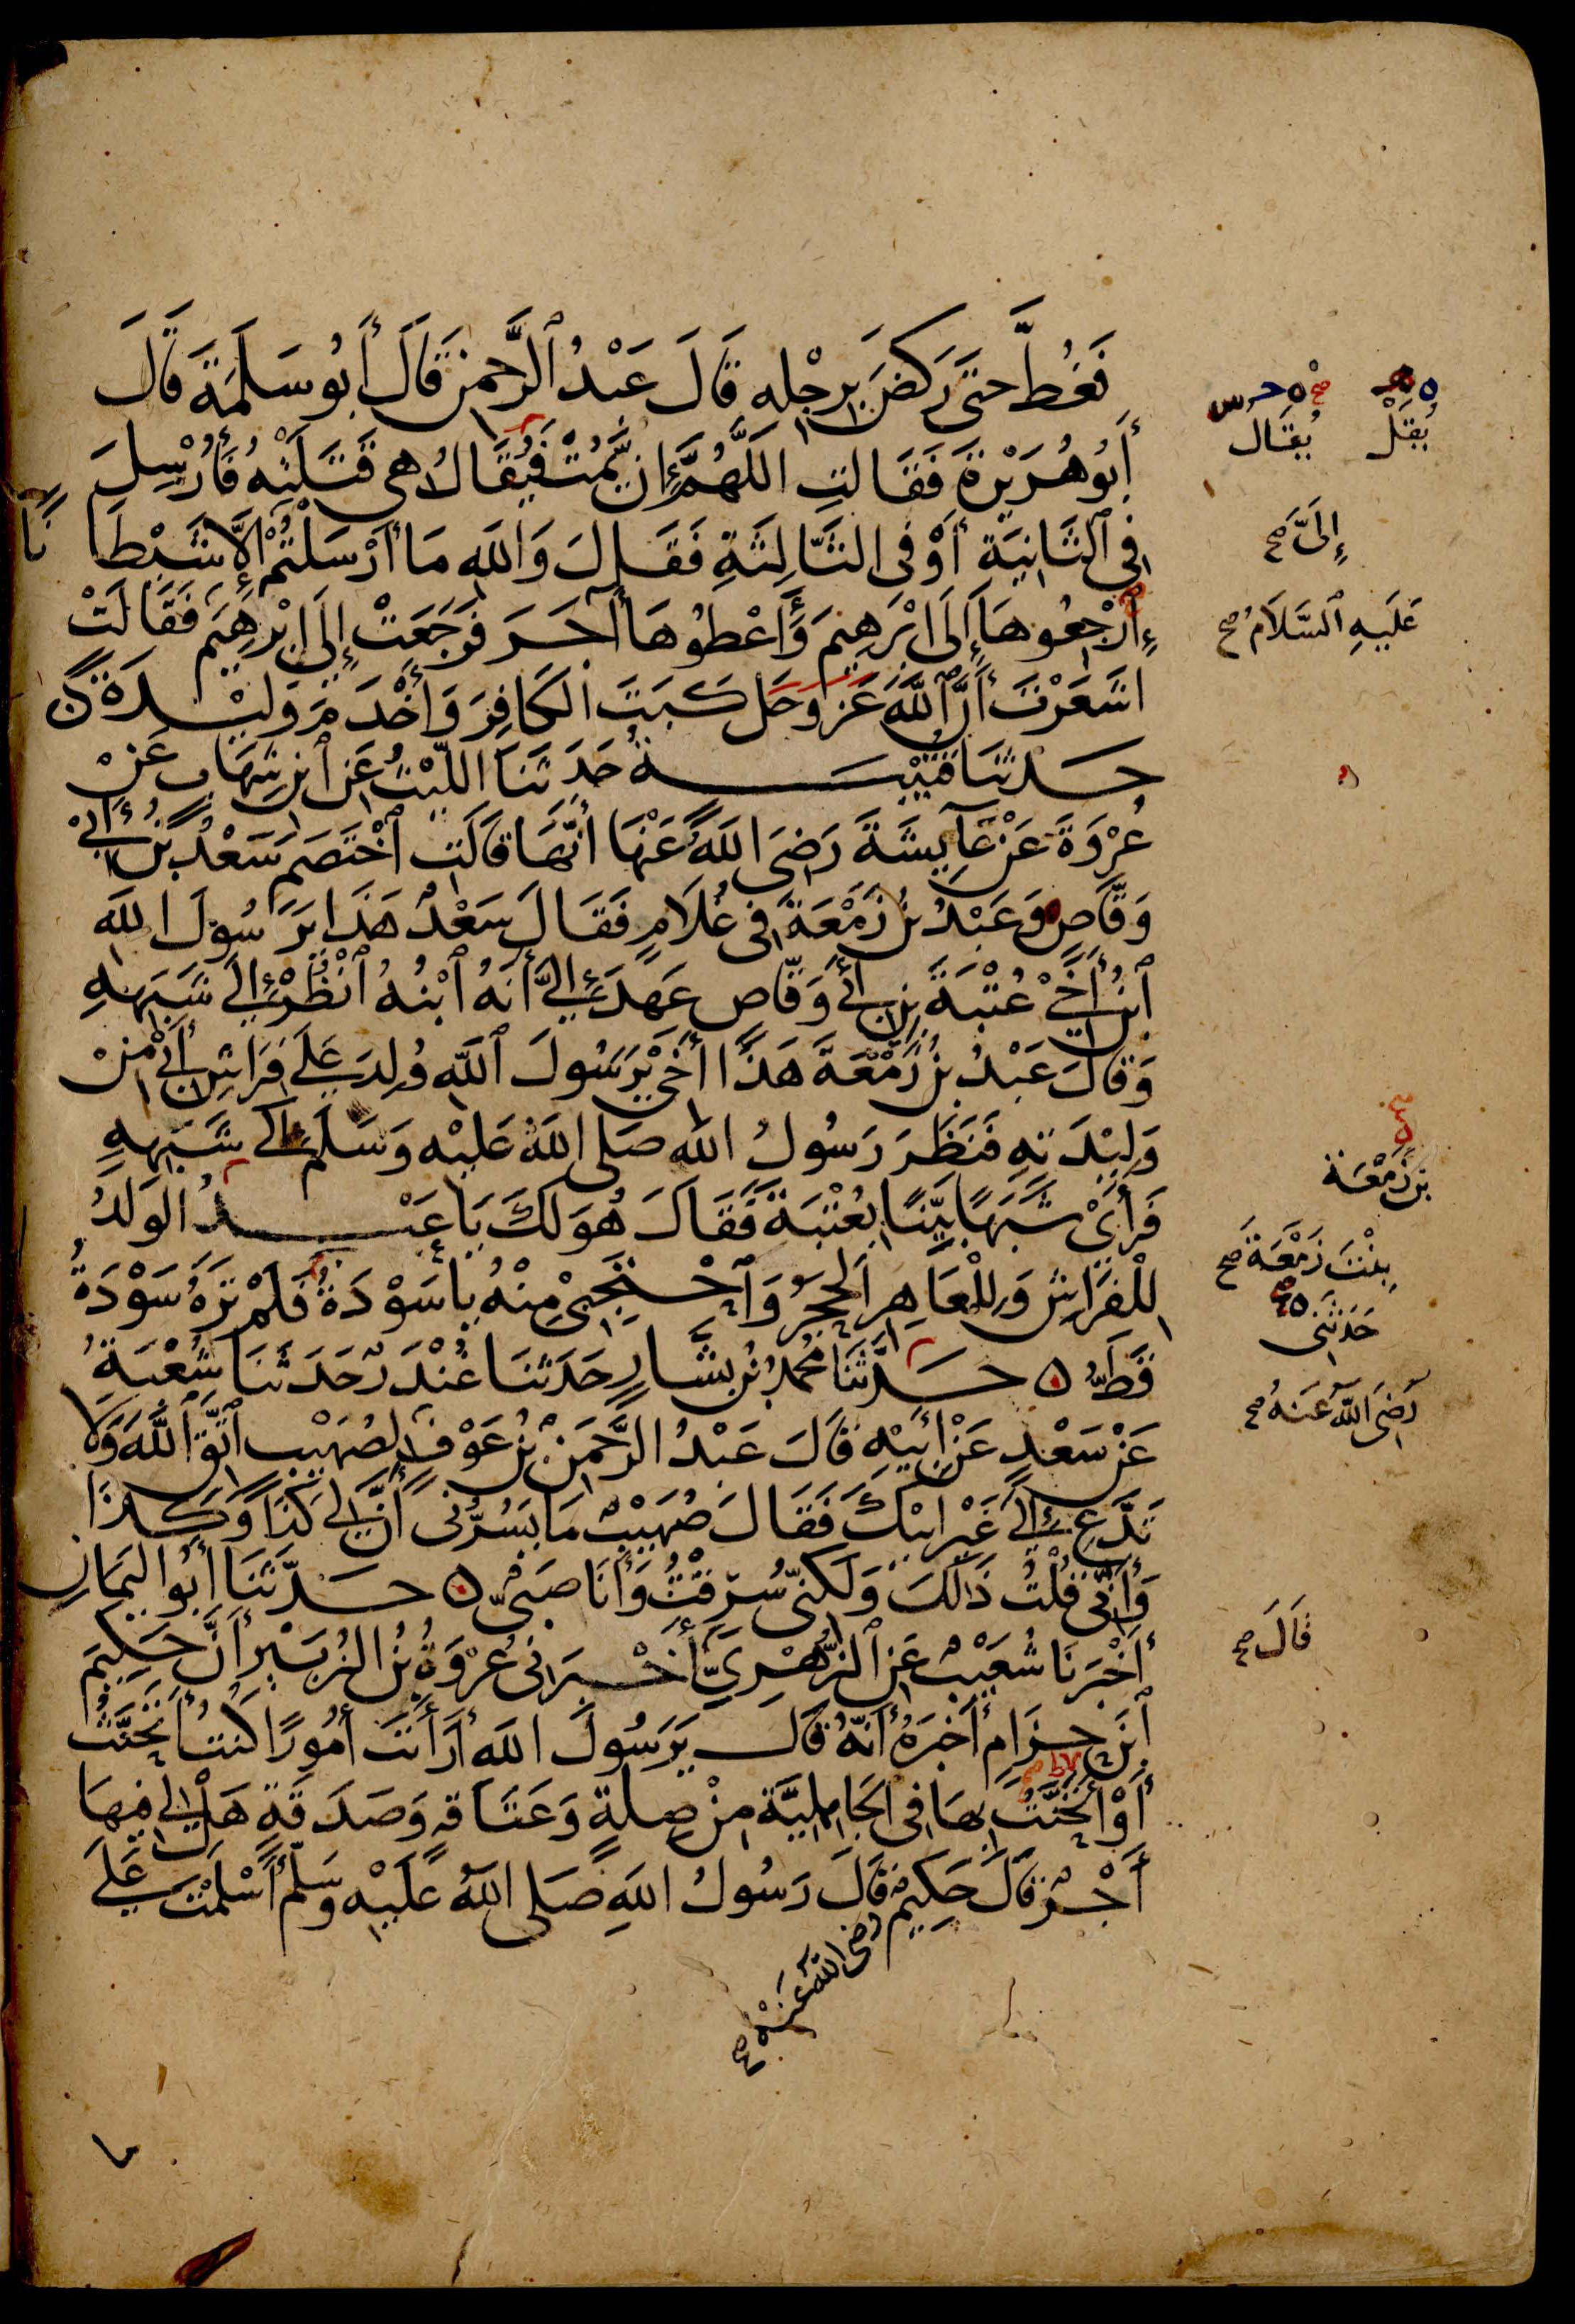 فَغُطَّ حتَّى رَكَضَ بِرِجْلِهِ قَالَ عَبْدُ الرَّحمنِ قَالَ أَبُو سَلَمَةَ قَالَ
أَبُو هُرَيْرَةَ فَقَالَتِ اللَّهُمَّ إِنْ يَمُتْ فَيُقَالُ هِىَ قَتَلَتْهُ فَأُرْسِلَ
يُقَلْ
يُقَالُ
فِى الثَّانِيَةِ أَوْ فِى الثَّالِثَةِ فَقَالَ وَاللهِ مَا أَرْسَلْتُمْ إِلَّا شَيْطَانًا
إِلَىَّ صح
ارْجِعُوهَا إِلَى إِبْرَهِيمَ وَأَعْطُوهَا آجَرَ فَرَجَعَتْ إِلَى إِبْرَهِيمَ فَقَالَتْ
عَلَيْهِ السَّلَامُ صح
أَشَعَرْتَ أَنَّ اللَّهَ عَزَّ وَجَلَّ كَبَتَ الْكَافِرَ وَأَخْدَمَ وَلِيدَةً
حَدثنَا قُتَيْبَةُ حَدَثَنَا اللَّيْثُ عَنِ ابْنِ شِهَابٍ عَنْ
عُرْوَةَ عَنْ عَآئِشَةَ رَضِىَ اللَّهُ عَنْهَا أَنَّهَا قَالَتِ اخْتَصَمَ سَعْدُ بْنُ أَبِى
وَقَّاصٍ وَعَبْدُ بْنُ زَمْعَةَ فِى غُلَامٍ فَقَالَ سَعْدٌ هَذَا يَرَسُولَ اللهِ
ابْنُ أَخِى عُتْبَةَ بْنِ أَبِى وَقَّاصٍ عَهِدَ إِلَىَّ أَنَّهُ ابْنُهُ انْظُرْ إِلَى شَبَهِهِ
وَقَالَ عَبْدُ بْنُ زَمْعَةَ هَذَا أَخِى يَرَسُولَ اللهِ وُلِدَ عَلَى فِرَاشِ أَبِى مِنْ
وَلِيدَتِهِ فَنَظَرَ رَسُولُ اللهِ صَلى اللهُ عَلَيْهِ وَسَلَّمَ إِلَى شَبَهِهِ
فَرَأَى شَبَهًا بَيِّنًا بِعُتْبَةَ فَقَالَ هُوَ لَكَ يَا عَبْدُ الْوَلَدُ
بْنَ زَمْعَةَ
لِلْفِرَاشِ وَلِلْعَاهِرِ الْحَجَرُ وَاحْتَجِبِى مِنْهُ يَا سَوْدَةُ فَلَمْ تَرَهُ سَوْدَةُ
بِنْتَ زَمْعَةَ صح
قَطُّ ه حَدَّثَنَا مُحَمَّدُ بْنُ بَشَّارٍ حَدَثَنَا غُنْدَرٌ حَدَثَنَا شُعْبَةُ
حَدَّثَنِى
عَنْ سَعْدٍ عَنْ أَبِيهِ قَالَ عَبْدُ الرَّحْمَنِ بْنُ عَوْفٍ لِصُهَيْبٍ اتَّقِ اللَّهَ وَلَا
رَضِىَ اللهُ عَنْهُ صح
تَدَّعِ إِلَى غَيْرِ أَبِيكَ فَقَالَ صُهَيْبٌ مَا يَسُرُّنِى أَنَّ لِى كَذَا وَكَذَا
وَأَنِّى قُلْتُ ذَلِكَ وَلَكِنِّى سُرِقْتُ وَأَنَا صَبِىٌّ ه حَدَّثَنَا أَبُو الْيَمَانِ
أَخْبَرَنَا شُعَيْبٌ عَنِ الزُّهْرِىِّ أَخْبَرَنِى عُرْوَةُ بْنُ الزُّبَيْرِ أَنَّ حَكِيمَ
قَالَ صح
ابْنَ حِزَامٍ أَخْبَرَهُ أَنَّهُ قَالَ يَرَسُولَ اللهِ أَرَأَيْتَ أُمُورًا كُنْتُ أَتَحَنَّثُ
أَوْ أَتَحَنَّتُ بِهَا فِى الْجَاهِلِيَّةِ مِنْ صِلَةٍ وَعَتَاقَةٍ وَصَدَقَةٍ هَلْ لِى فِيهَا
أَجْرٌ قَالَ حَكِيمٌ قَالَ رَسُولُ اللهِ صَلى اللهُ عَلَيْهِ وَسَلَّمَ أَسْلَمْتَ عَلَى
رضى اللهُ عَنْهُ صح